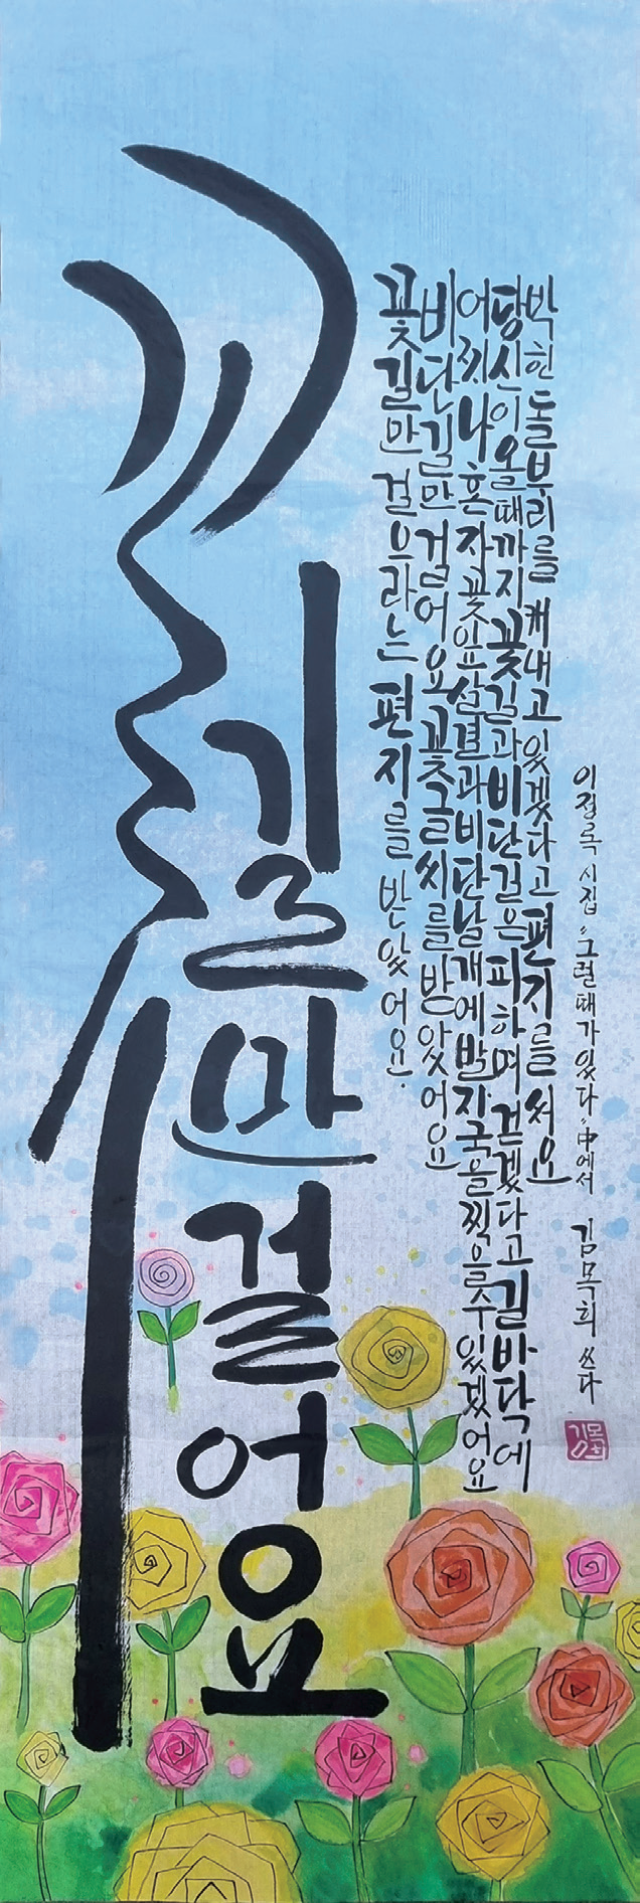 꽃길만걸어요
꽃길만 걸으라는 편지를 받았어요.
비단길만 걸어요 꽃글씨를 받았어요
어찌 나 혼자 꽃잎 살결과 비단날개에 발자국을 찍을수 있겠어요
당신이 올때까지 꽃길과 비단길은 피하며 걷겠다고 길바닥에
박힌 돌부리를 캐내고 있겠다고 편지를 써요
이정록 시집 "그럴때가 있다" 中에서 김목희 쓰다
김목희